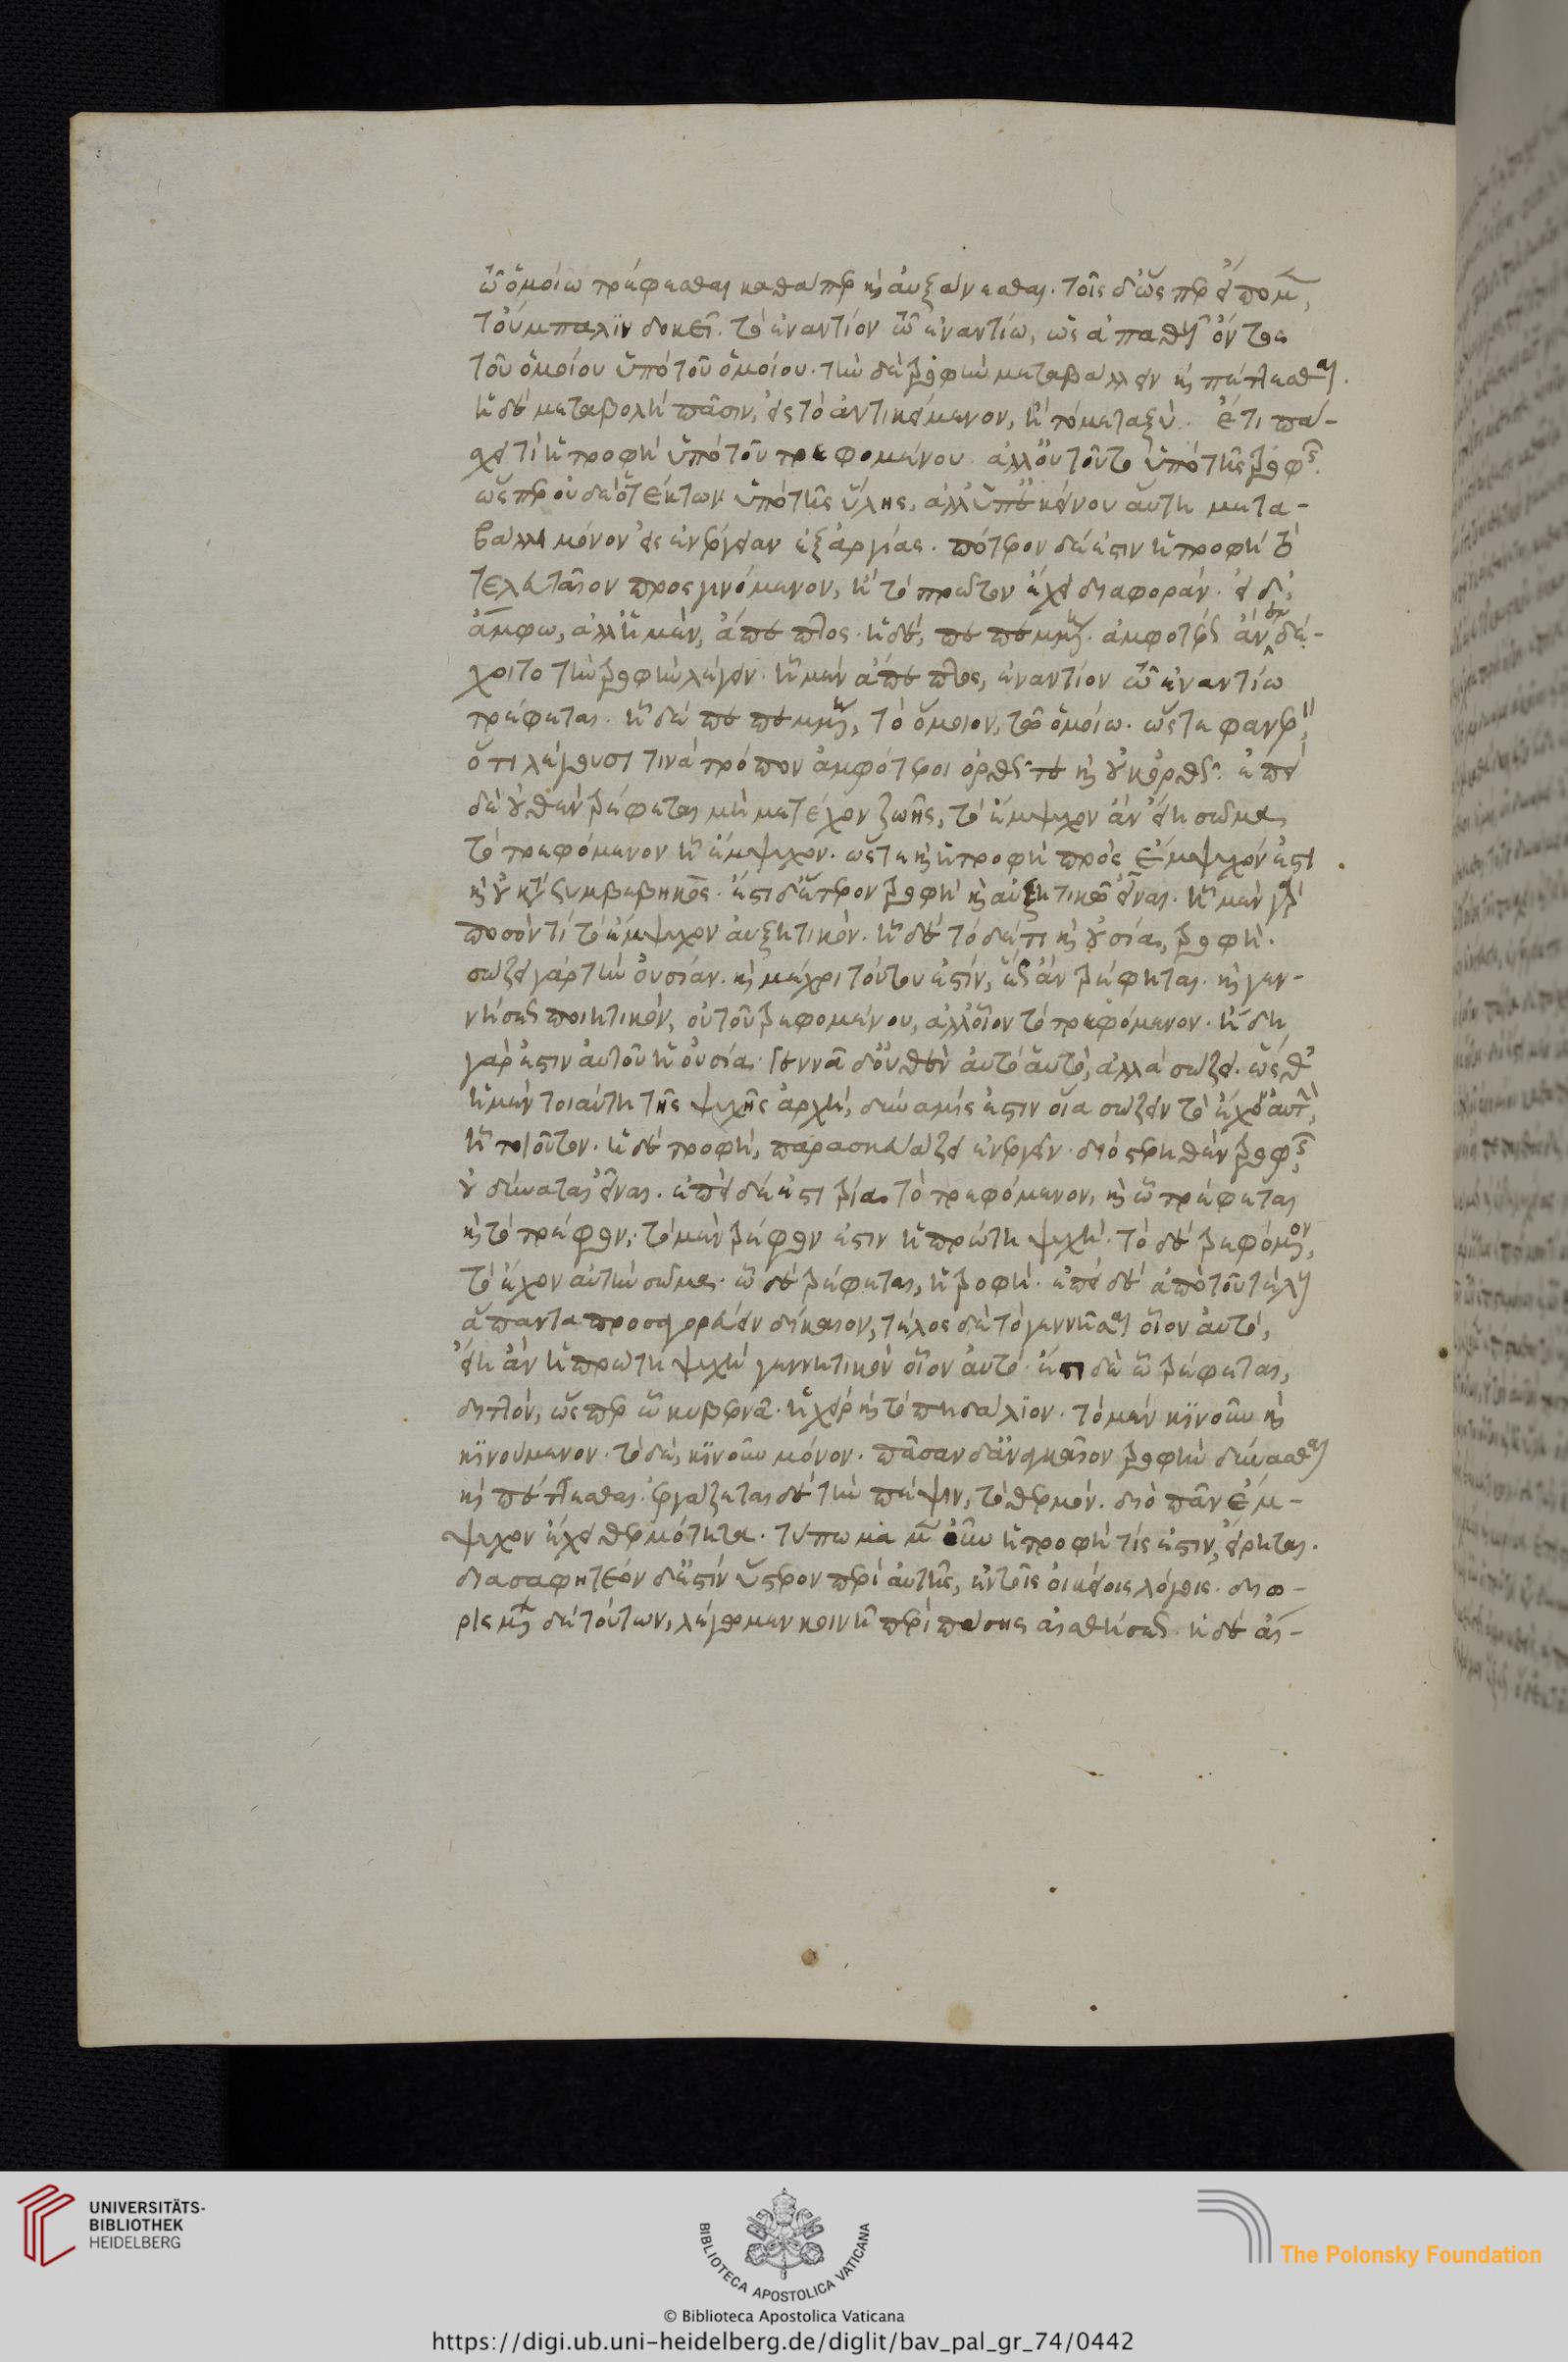 ῶ ὁμοίω τρέφεσθαι καθάπερ καὶ ἀυξάνεσθαι. τοῖς δ' ὥσπερ εἴπομεν,
τοὔμπαλιν δοκεῖ. τὸ ἐναντίον τῶ ἐναντίω, ὡς ἀπαθοῦς ὄντος
τοῦ ὁμοίου ὑπὸ τοῦ ὁμοίου. τὴν δὲ τροφὴν μεταβάλλειν καὶ πέττεσθαι.
ἡ δὲ μεταβολὴ πᾶσιν, εἰς τὸ ἀντικείμενον, ἢ τὸ μεταξύ. ἔτι πά-
σχει τὶ ἡ τροφὴ ὑπὸ τοῦ τρεφομένου. ἀλλ' οὐ τοῦτο ὑπὸ τῆς τροφῆς.
ὥσπερ οὐδὲ ὁ τέκτων ὑπὸ τῆς ὕλης, ἀλλ' ὑπ' ἐκείνου αὕτη μετα-
βάλλει μόνον εἰς ἐνέργειαν ἐξ ἀργίας. πότερον δέ ἐστιν ἡ τροφὴ τὸ
τελευταῖον προσγινόμενον, ἢ τὸ πρῶτον ἔχει διαφοράν. εἰ δ'
ἄμφω, ἀλλ' ἡ μὲν, ἄπεπτος. ἡ δὲ, πεπεμμένη. ἀμφοτέρως ἂν ἐνδέ-
χοιτο τὴν τροφὴν λέγειν. ἡ μὲν ἄπεπτος, ἐναντίον τῶ ἐναντίω
τρέφεται. ἡ δὲ πεπεμμένη, τὸ ὅμοιον, τῶ ὁμοίω. ὥστε φανερὸν
ὅτι λέγουσι τινὰ τρόπον ἀμφότεροι ὀρθῶς τε καὶ οὐκ ὀρθῶς. ἐπεὶ
δὲ οὐθὲν τρέφεται μὴ μετέχον ζωῆς, τὸ ἔμψυχον ἂν εἴη σῶμα,
τὸ τρεφόμενον ἢ ἔμψυχον. ὥστε καὶ ἡ τροφὴ πρὸς ἔμψυχόν ἐστι
καὶ οὐ κατὰ συμβεβηκός. ἔστι δ' ἕτερον τροφῆ καὶ αὐξητικῶ εἶναι. ἧ μὲν γὰρ
ποσόν τί τὸ ἔμψυχον ἀυξητικόν. ἧ δὲ τόδέ τι καὶ οὐσία, τροφή.
σώζει γὰρ τὴν οὐσίαν. καὶ μέχρι τούτου ἐστίν, ἕως ἂν τρέφηται. καὶ γεν-
νήσεως ποιητικόν, οὐ τοῦ τρεφομένου, ἀλλ' οἷον τὸ τρεφόμενον. ἤδη
γάρ ἐστιν ἀυτοῦ ἡ οὐσία. γεννᾶ δ' οὐθὲν ἀυτὸ ἑαυτό, ἀλλὰ σώζει. ὥσθ'
ἡ μὲν τοιαύτη τῆς ψυχῆς ἀρχή, δύναμίς ἐστιν οἵα σώζειν τὸ ἔχον ἀυτὴν,
ἧ τοιοῦτον. ἡ δὲ τροφή, παρασκευάζει ἐνεργεῖν. διὸ στερηθὲν τροφῆς,
οὐ δύναται εἶναι. ἐπεὶ δέ ἐστι τρία τὸ τρεφόμενον, καὶ ὧ τρέφεται
καὶ τὸ τρέφον, τὸ μὲν τρέφον ἐστιν ἡ πρώτη ψυχή. τὸ δὲ τρεφόμενον,
τὸ ἔχον αὐτὴν σῶμα. ὧ δὲ τρέφεται, ἡ τροφή. ἐπεὶ δὲ ἀπὸ τοῦ τέλους
ἅπαντα προσαγορεύειν δίκαιον, τέλος δὲ τὸ γεννῆσαι οἷον ἀυτό,
εἴη ἂν ἡ πρώτη ψυχὴ γεννητικὸν οἷον ἀυτό. ἔστι δὲ ὧ τρέφεται,
διττόν, ὥσπερ ὧ κυβερνᾶ. ἡ χεὶρ καὶ τὸ πηδάλιον. τὸ μὲν κινοῦν καὶ
κινούμενον. τὸ δὲ, κινοῦν μόνον. πᾶσαν δ' ἀναγκαῖον τροφὴν δύνασθαι
καὶ πέττεσθαι. ἐργάζεται δὲ τὴν πέψιν, τὸ θερμόν. διὸ πᾶν ἔμ-
ψυχον ἔχει θερμότητα. τύπω μὲν οὖν ἡ τροφὴ τίς ἐστιν, εἴρηται.
διασαφητέον δ' ἐστίν ὕστερον περὶ ἀυτῆς, ἐν τοῖς οἰκείοις λόγοις. διω-
ρισμένων δὲ τούτων, λέγομεν κοινῆ περὶ πάσης αἰσθήσεως. ἡ δὲ αἴσ-
UNIVERSITÄTS-
BIBLIOTHEK
HEIDELBERG
BIBLIOTECA APOSTOLICA VATICANA
The Polonsky Foundation
© Biblioteca Apostolica Vaticana
https://digi.ub.uni-heidelberg.de/diglit/bav_pal_gr_74/0442